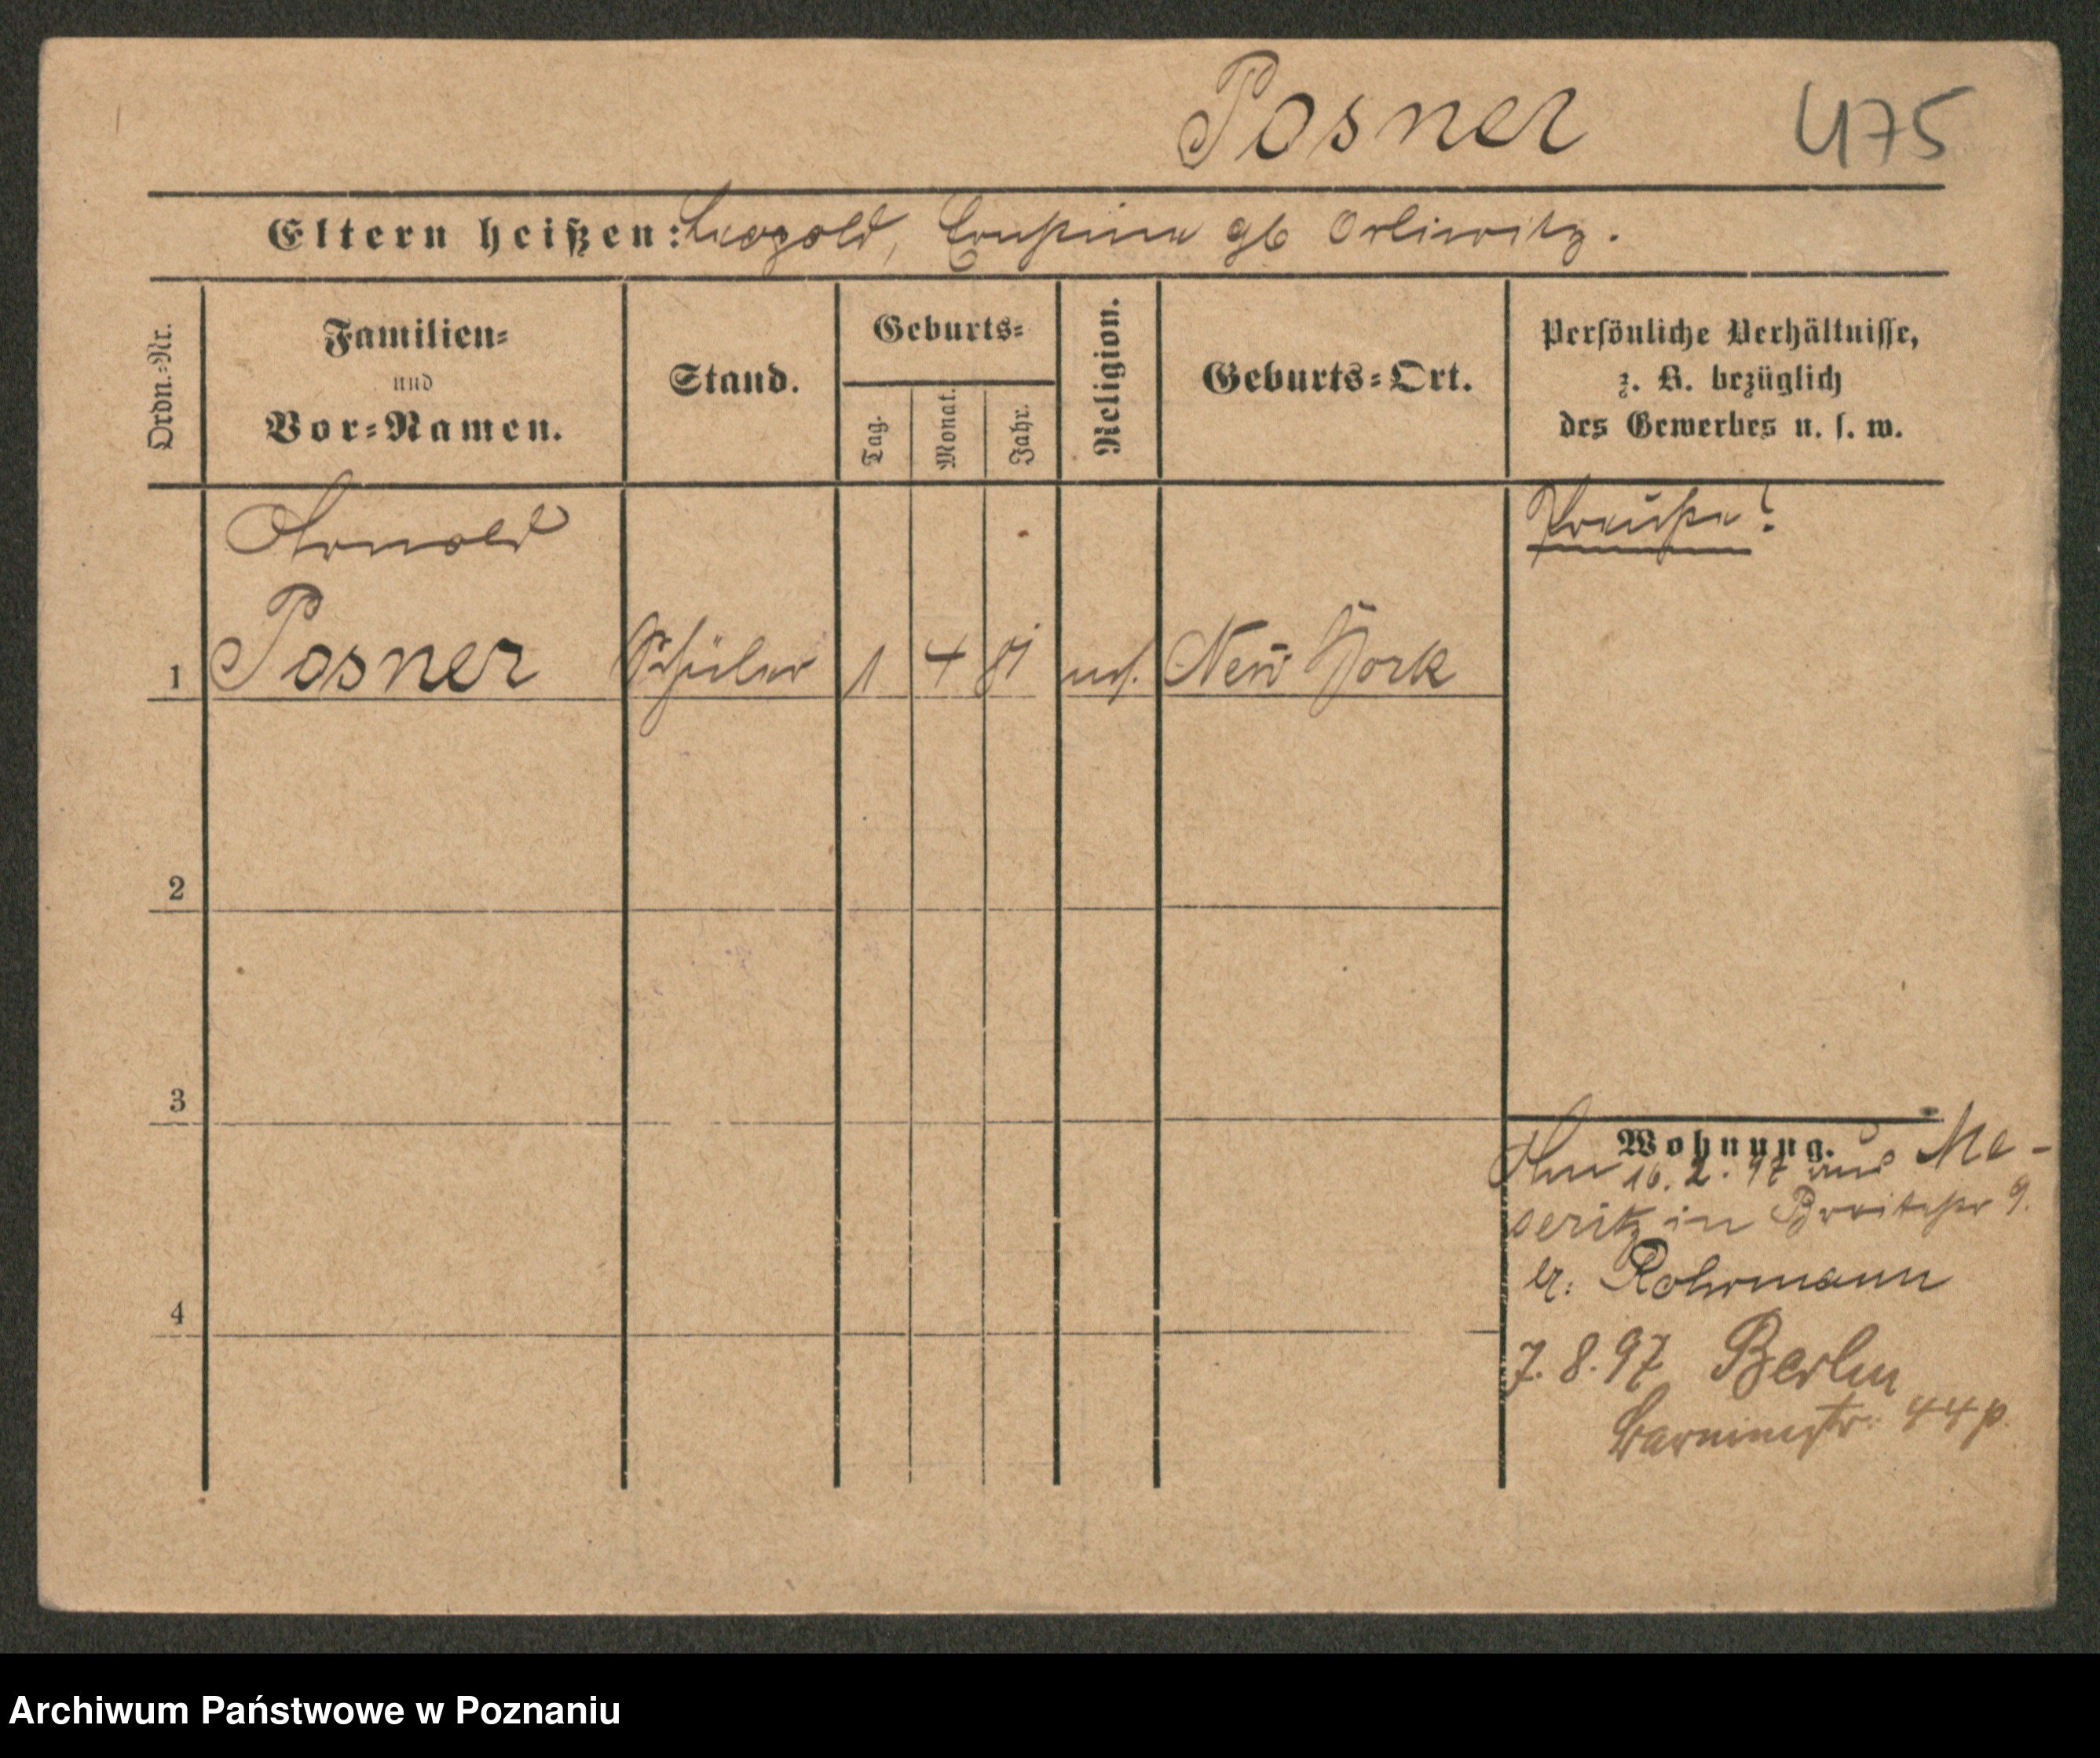 Posner 475
Eltern heißen: Leopold, Ernestine gb Orliewitz.
Ordn.-Nr.
Familien-
und
Vor-Namen.
Stand.
Geburts-
Tag.
Monat.
Jahr.
Religion.
Geburts-Ort.
Persönliche Verhältnisse,
z. B. bezüglich
des Gewerbes u. s. w.
Arnold
Preuße!
1 Posner Schüler 1 4 81 New York
2
3
4
Wohnung.
16. 2. 97 aus Me-
seritz in Breitestr 9.
Rohrmann
7. 8. 97 Berlin
Barnimstr. 44 p.
Archiwum Państwowe w Poznaniu